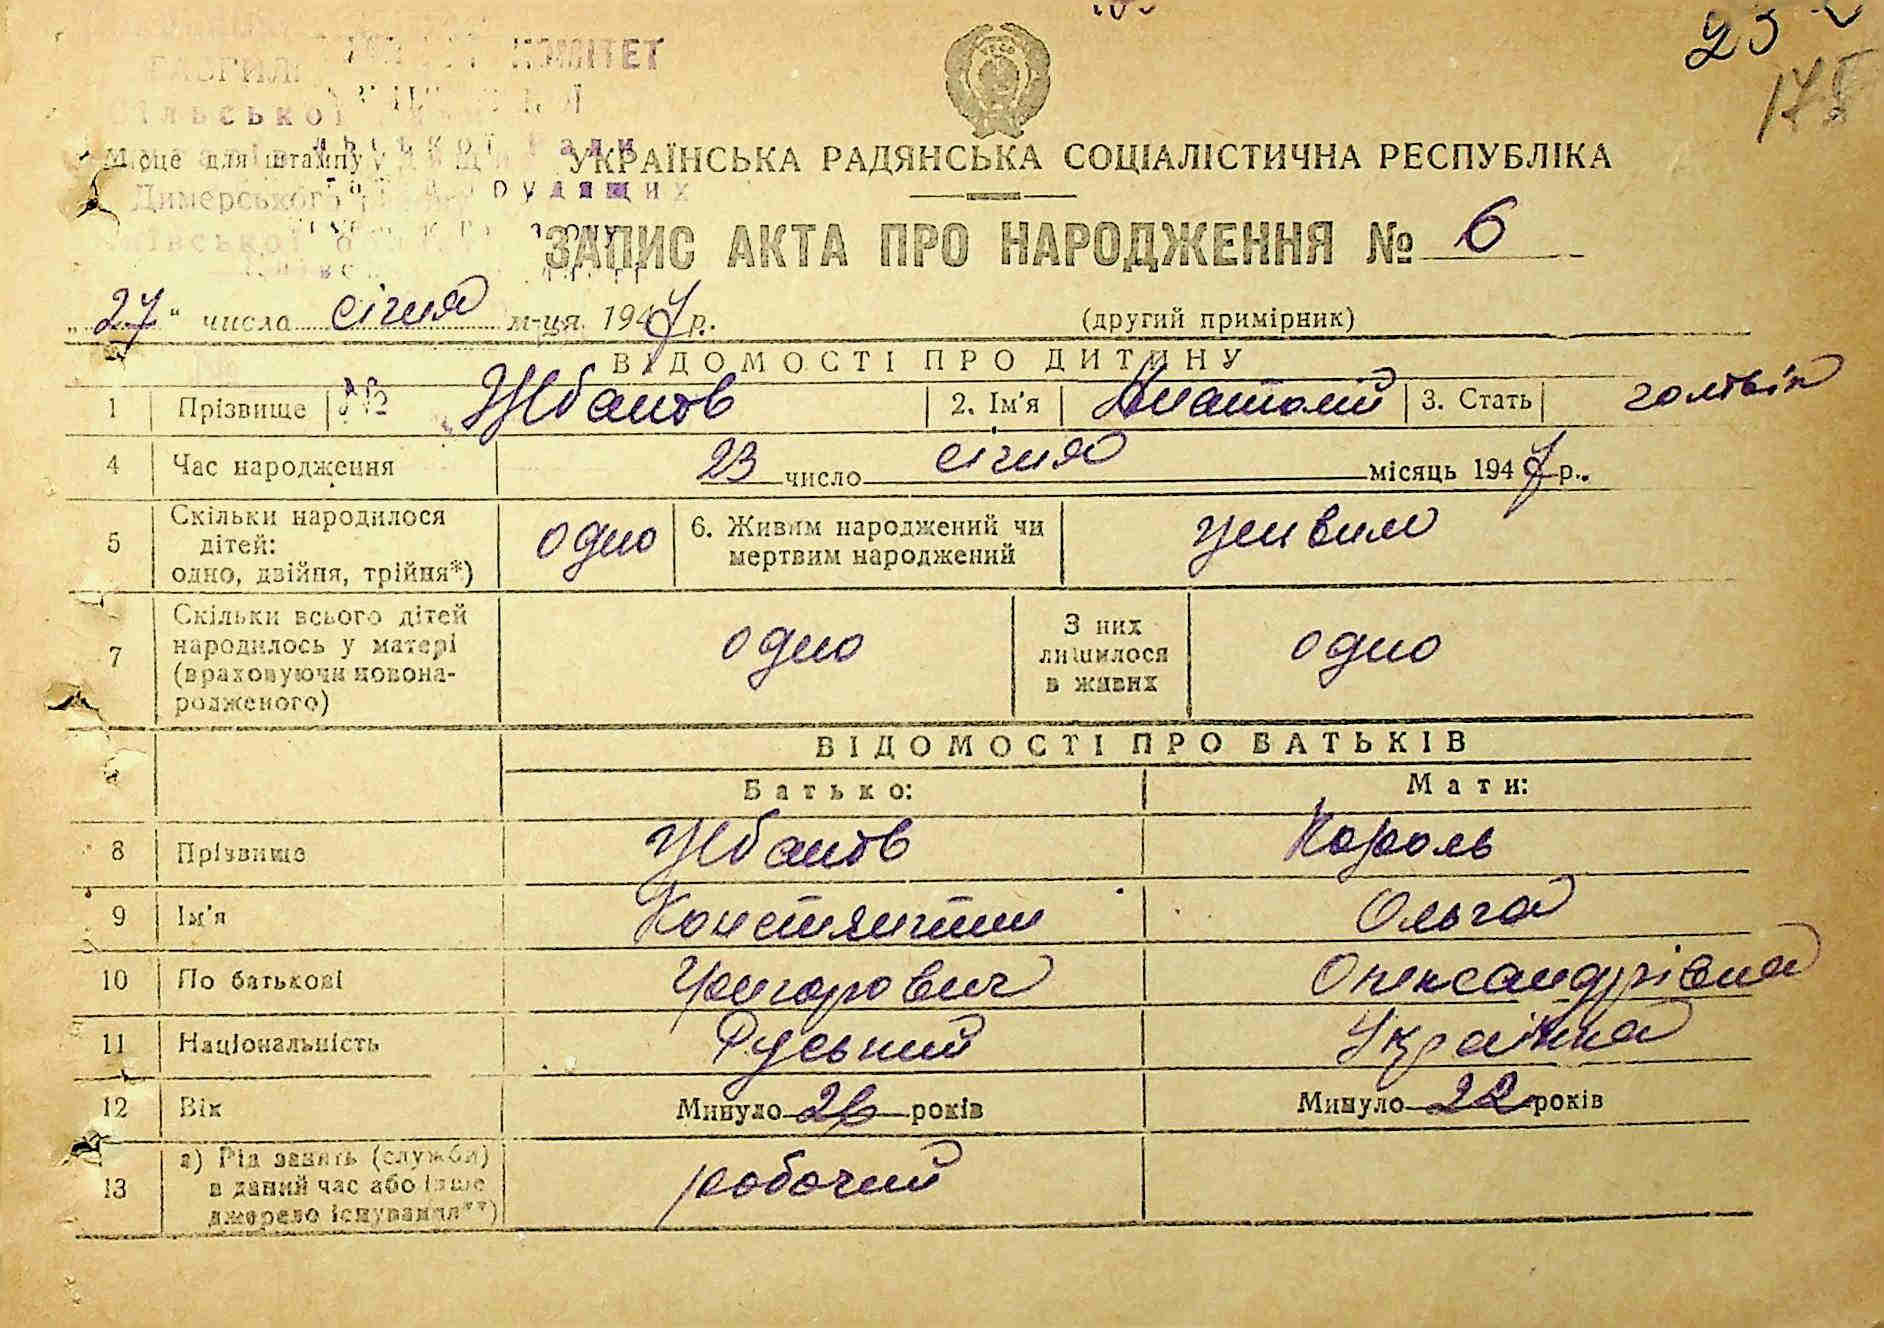 КОМІТЕТ
Сільської Ради
Місце для штампу
УКРАЇНСЬКА РАДЯНСЬКА СОЦІАЛІСТИЧНА РЕСПУБЛІКА
Димерського
ЗАПИС АКТА ПРО НАРОДЖЕННЯ № 6
"27" числа січня м-ця 1947 р.
(другий примірник)
ВІДОМОСТІ ПРО ДИТИНУ
1 Прізвище Жбанов 2. Ім'я Анатолій 3. Стать
4 Час народження 23 число січня місяць 1947 р.
5 Скільки народилося дітей: одно, двійня, трійня*) одно 6. Живим народжений чи мертвим народжений живим
7 Скільки всього дітей народилось у матері (враховуючи новонародженого) одно З них лишилося в живих одно
ВІДОМОСТІ ПРО БАТЬКІВ
Батько: Мати:
8 Прізвище Жбанов Король
9 Ім'я Констянтин Ольга
10 По батькові Григорович Олександрівна
11 Національність Руський Українка
12 Вік Минуло 26 років Минуло 22 років
13 а) Рід занять (служби) в даний час або інше джерело існування**) робочий